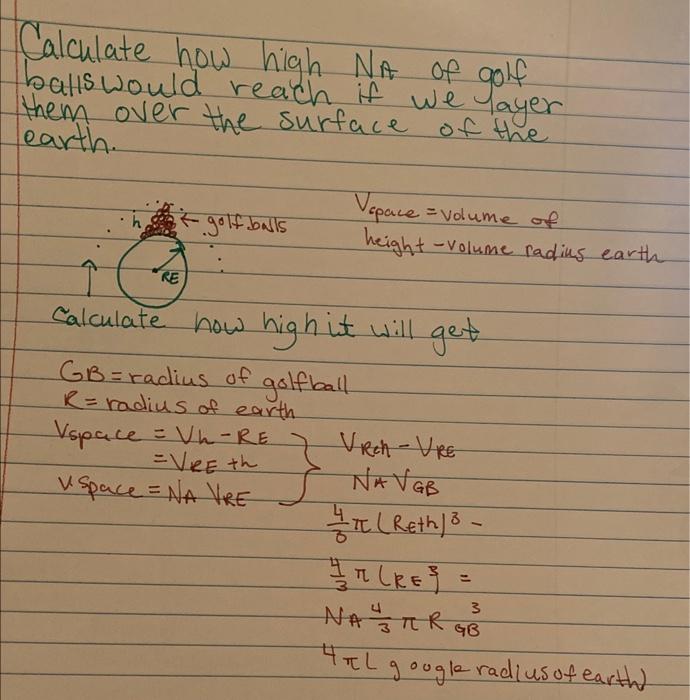 Calculate how high NA of golf
balls would reach if we layer
them over the surface of the
earth.
h ← golf balls
RE
Vspace = volume of
height - volume radius earth
Calculate how high it will get
GB = radius of golfball
R = radius of earth
Vspace = Vh - RE
= VRE + h
Vspace = NA VRE
VREh - VRE
NA VGB
4/3 π (REth)³ -
4/3 π (RE³ =
NA 4/3 π R GB³
4π ( google radius of earth)